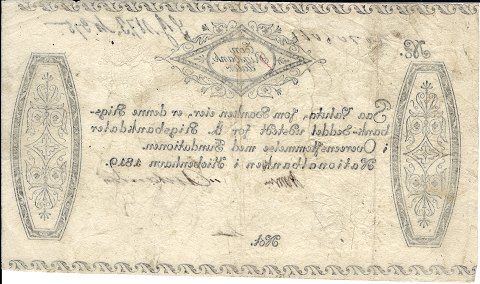 No.
Een
Rigsbank-
daler
Paa Valuta, som Banken eier, er denne Rigs-
bank-Seddel udstedt for 1. Rigsbankdaler
i Overeensstemmelse med Fundationen.
Nationalbanken i Kiøbenhavn 1819.
Not.